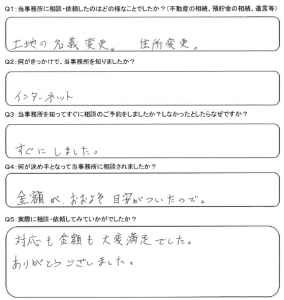 Q1:当事務所に相談・依頼したのはどの様なことでしたか？(不動産の相続、預貯金の相続、遺言等)
土地の名義変更。 住所変更。
Q2:何がきっかけで、当事務所を知りましたか？
インターネット
Q3:当事務所を知ってすぐに相談のご予約をしましたか？しなかったとしたらなぜですか？
すぐにしました。
Q4:何が決め手となって当事務所に相談されましたか？
金額が、おおよそ目安がついたので。
Q5:実際に相談・依頼してみていかがでしたか？
対応も金額も大変満足でした。
ありがとうございました。